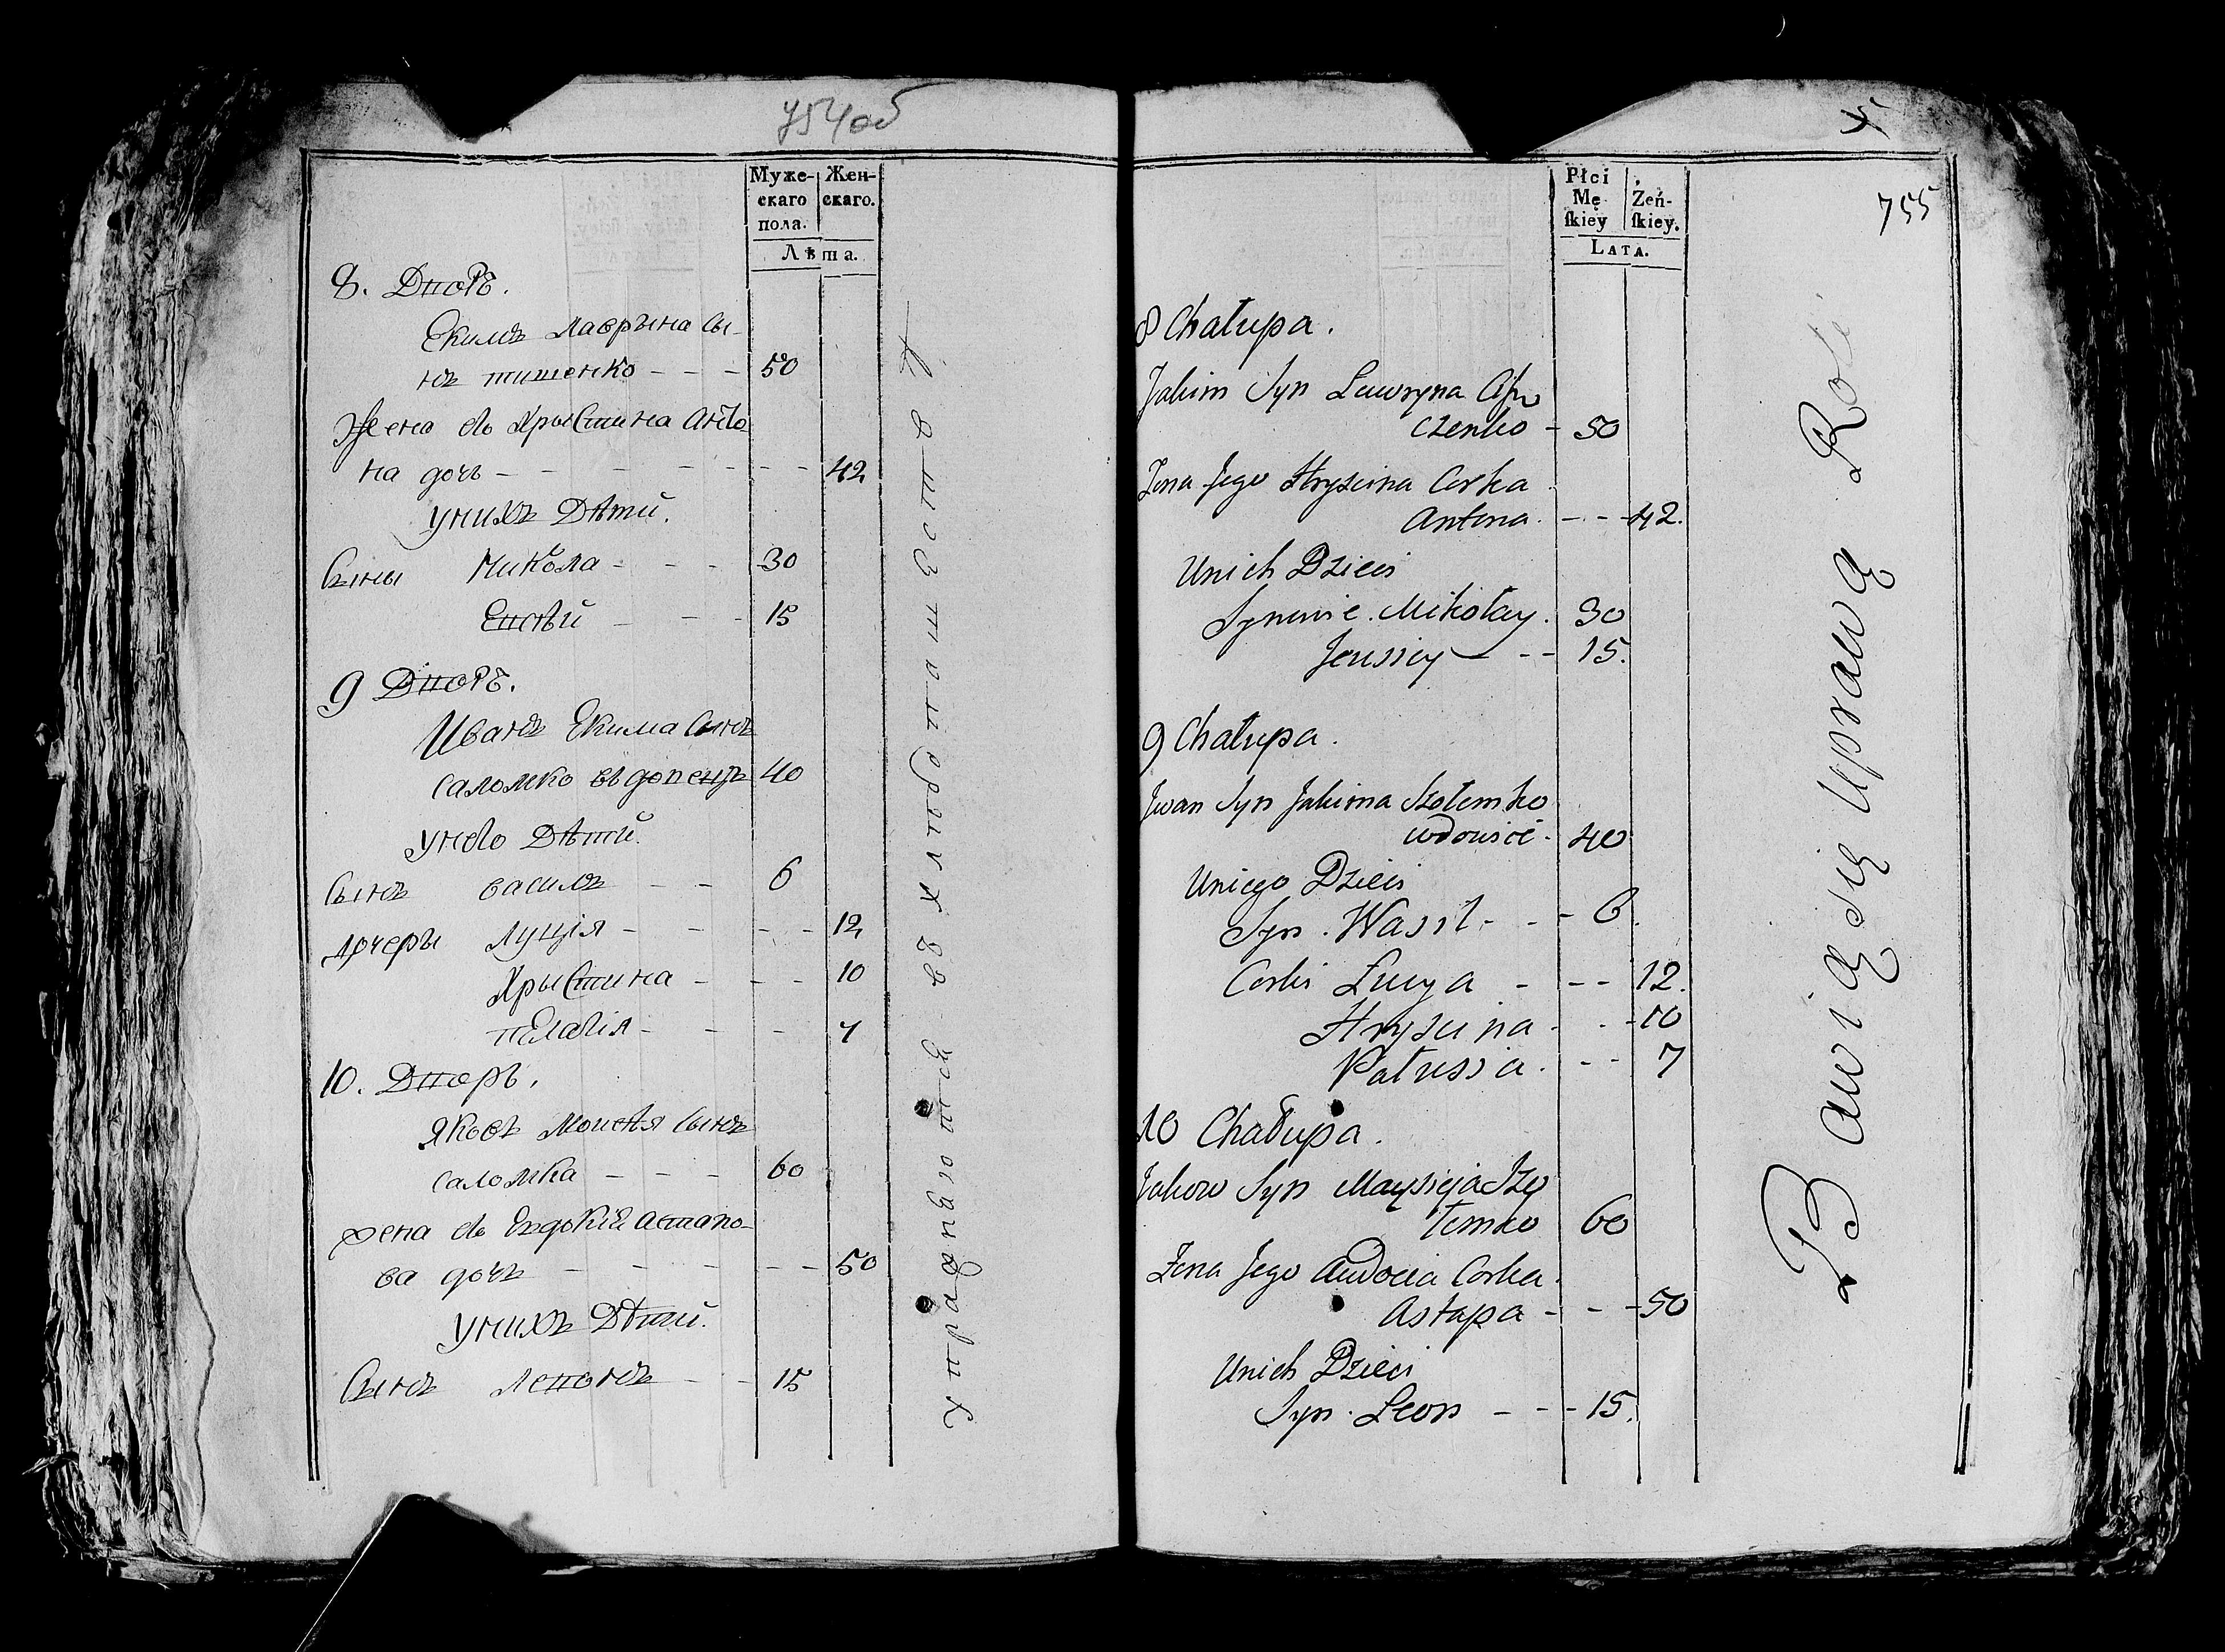 754об
Муже- Жен-
скаго скаго.
пола.
Лѣта.
8. Дворъ.
Екимъ Лаврына Сы-
нъ тишенко - - - 50
Жена его Хрыстина Анто-
на дочъ - - - - - 42
Унихъ Дѣти.
Сыны Микола - - - 30
Евсѣй - - - 15
9 Дворъ.
Иванъ Екима Сынъ
саломко вдовецъ 40
Унего Дѣти.
Сынъ василъ - - 6
дочеры луція - - - - 12
Хрыстина - - - - 10
пелагія - - - 7
10. Дворъ.
Яковъ Моисѣя Сынъ
саломка - - - 60
жена его Евдокія астапо-
ва дочъ - - - - - 50
Унихъ Дѣти.
Сынъ левонъ - - 15
755
Płci
Mę- Żeń-
ſkiey ſkiey.
LATA.
8 Chałupa.
Jakim Syn Lawryna
czenko - 50
Żona Jego Hryscina Corka
Antona. - - - 42.
Unich Dzieci
Synowie. Mikołay. 30
Jeusiey - - - 15.
9 Chałupa.
Jwan Syn Jakima Szołomko
wdowiec - 40
Uniego Dzieci
Syn. Wasil - - - 6.
Corki Lucya - - - 12.
Hryscina - - - 10
Pałusia. - - 7
10 Chałupa.
Jakow Syn Maysieja Szo
łomko 60
Żona Jego Audocia Corka
Astapa - - - 50
Unich Dzieci
Syn. Leon - - - 15.
Bawią się Uprawą Roli